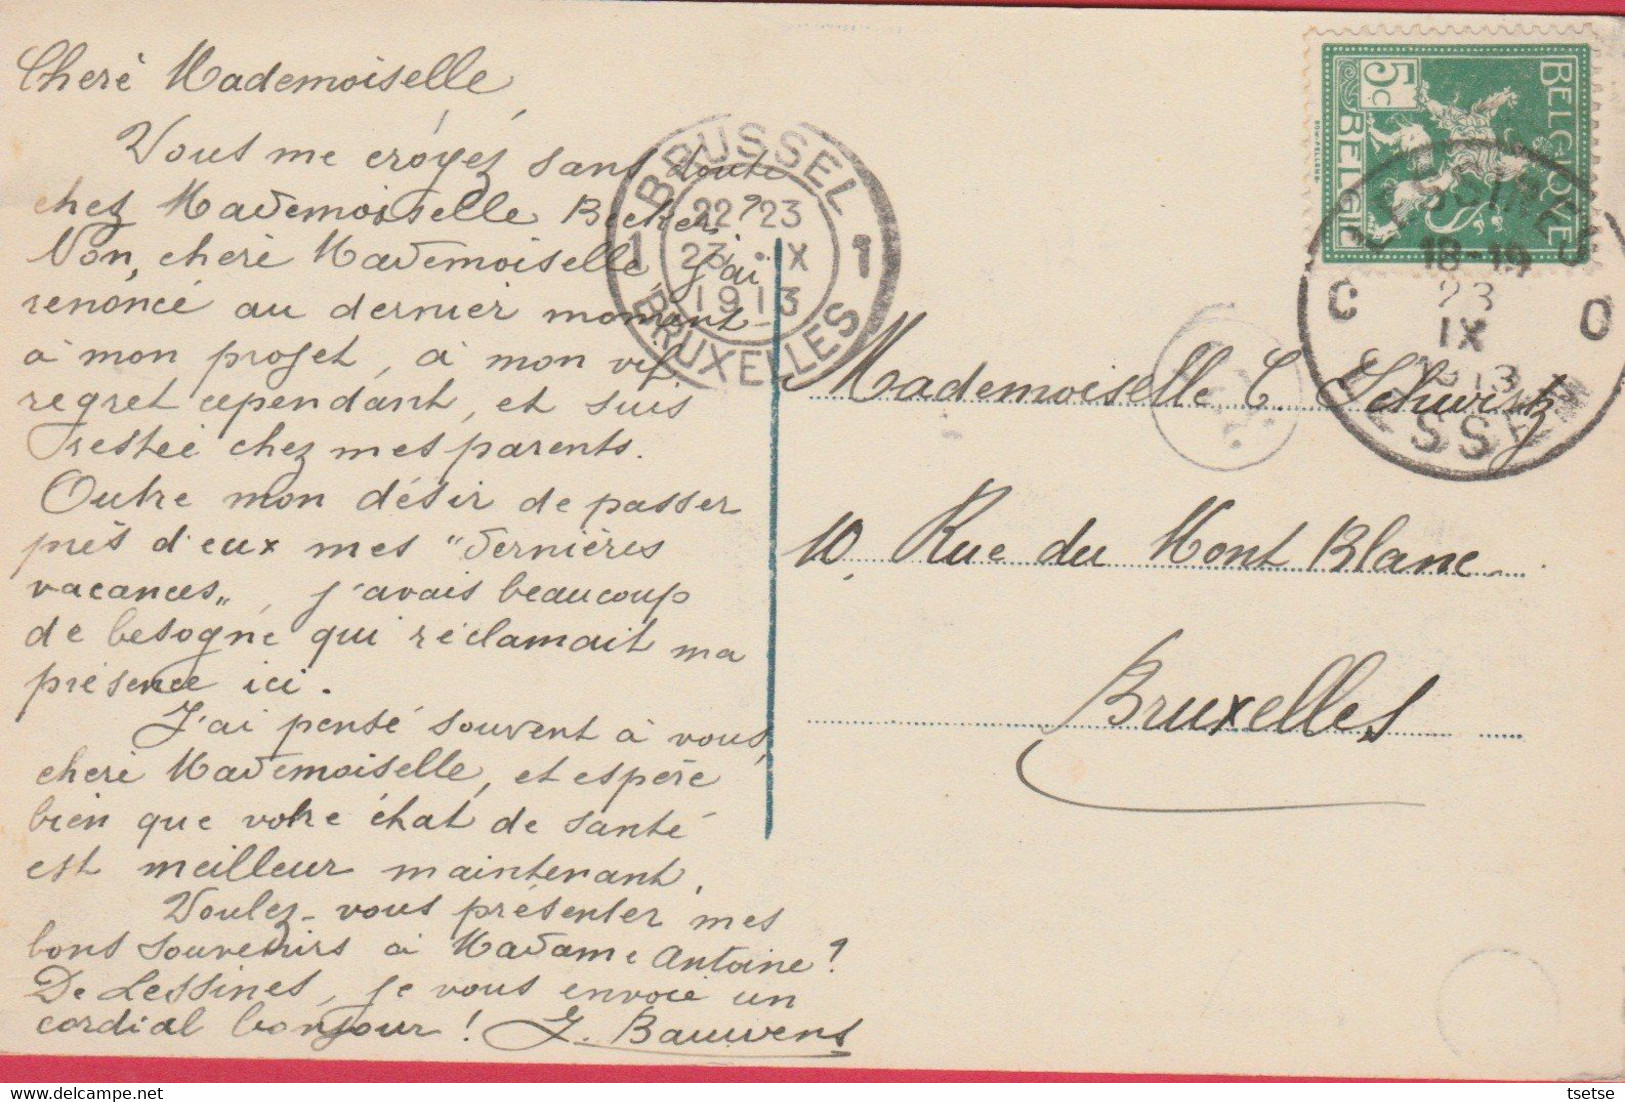 Cheré Mademoiselle,
Vous me croyez sans doute
chez Mademoiselle Becker?
Non, cheré Mademoiselle, j'ai
renoncé au dernier moment
à mon projet, à mon vif
regret cependant, et suis
restée chez mes parents.
Outre mon désir de passer
près d'eux mes "dernières
vacances", j'avais beaucoup
de besogne qui réclamait ma
présence ici.
J'ai pensé souvent à vous,
cheré Mademoiselle, et espère
bien que votre état de santé
est meilleur maintenant.
Voulez-vous présenter mes
bons souvenirs à Madame Antoine?
De Lessines, je vous envoie un
cordial bonjour! J. Bauwens
BRUSSEL
22-23
1 23 · IX 1
1913
BRUXELLES
5c
BELGIQUE
BELGIË
LESSINES
18-19
C 23 O
IX
1913
LESSEN
Mademoiselle C. Schwirtz
10, Rue du Mont Blanc
Bruxelles
tsetse